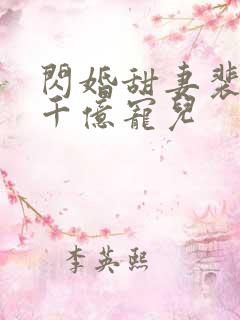 閃婚甜妻裴
千億寵兒
李英熙